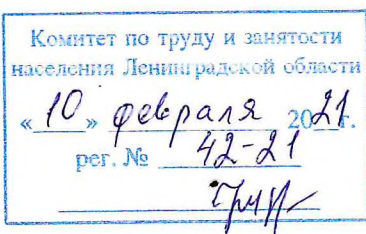 Комитет по труду и занятости
населения Ленинградской области
« 10 » февраля 2021г.
рег. № 42-21